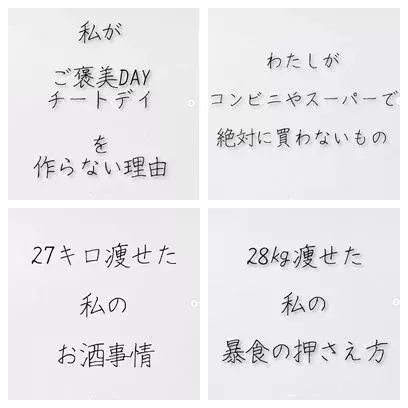 私が
ご褒美DAY
チートデイ
を
作らない理由
わたしが
コンビニやスーパーで
絶対に買わないもの
27キロ痩せた
私の
お酒事情
28kg痩せた
私の
暴食の押さえ方